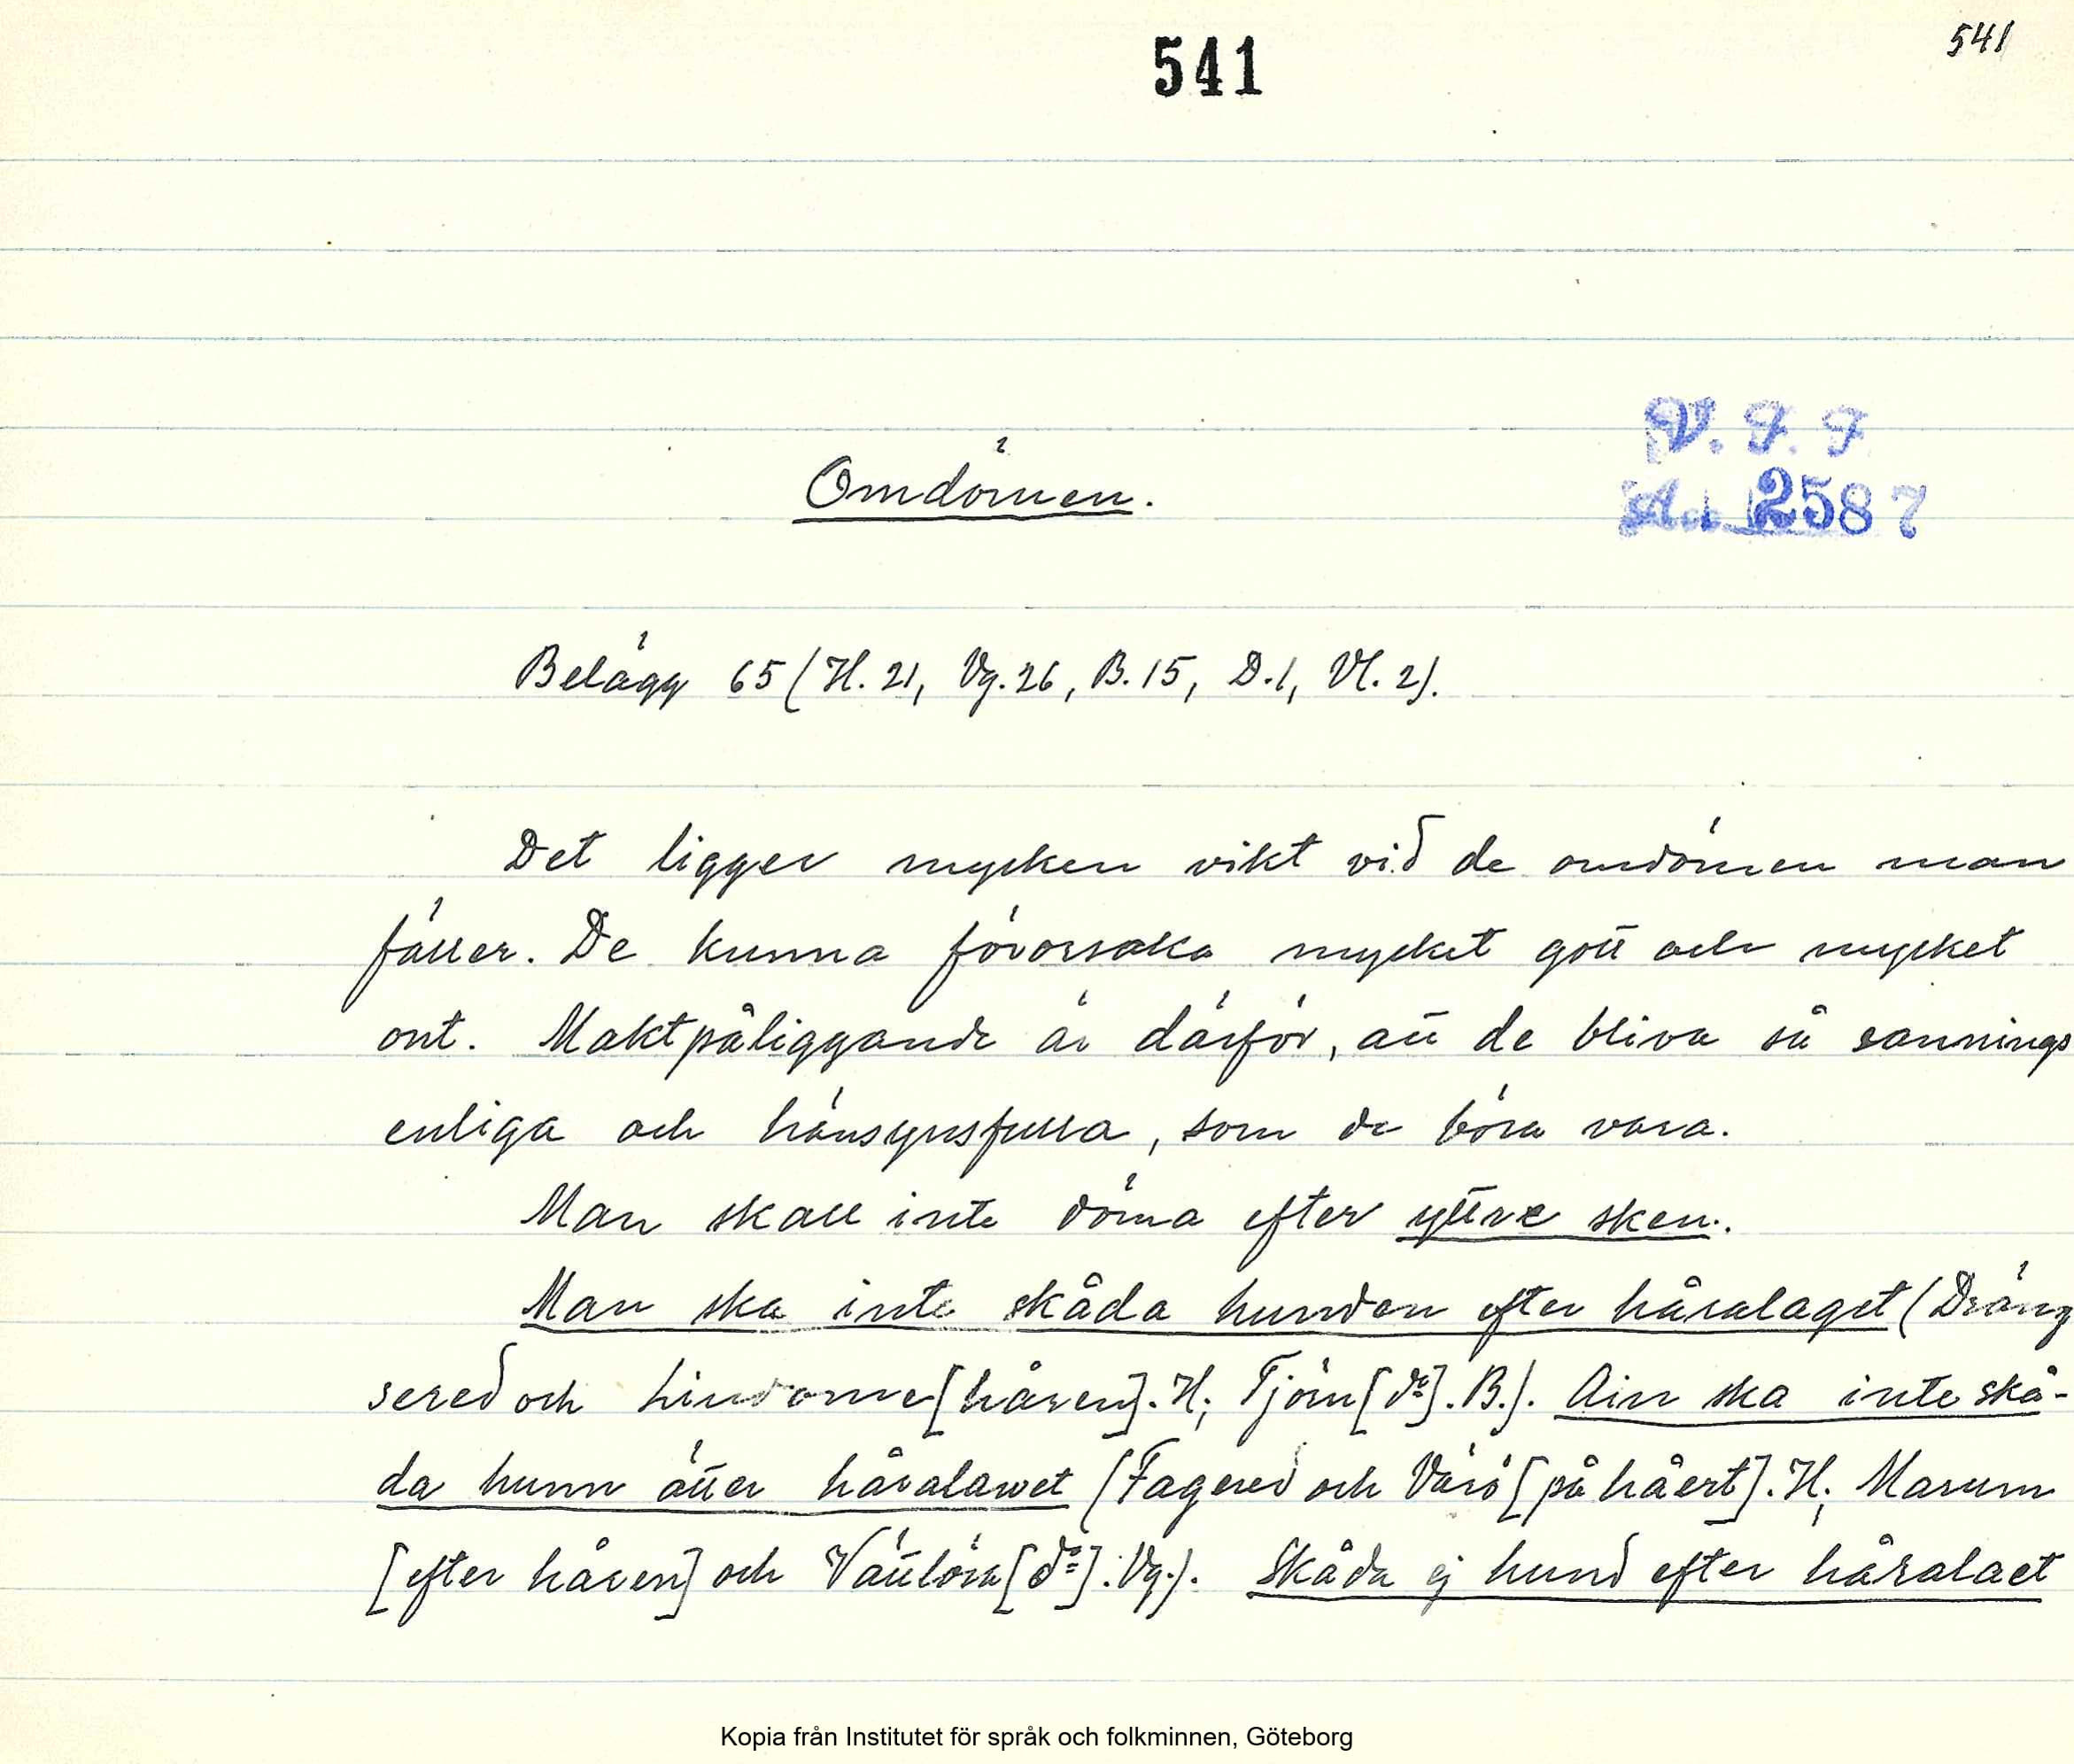 541
541
V. F. F
Acc 2587
Omdömen.
Belägg 65 (H. 21, Vg. 26, B. 15, D. 1, Vl. 2).
Det ligger mycken vikt vid de omdömen man
fäller. De kunna förorsaka mycket gott och mycket
ont. Maktpåliggande är därför, att de bliva så sannings
enliga och hänsynsfulla, som de böra vara.
Man skall inte döma efter yttre sken.
Man ska inte skåda hunden efter håralaget (Dräng
sered och Lindome [håren]. H; Tjörn [do]. B.). Ain ska inte skå-
da hunn ätter håralawet (Fagered och Värö [på håert]. H; Marum
[efter håren] och Vättlösa [do]. Vg.). Skåda ej hund efter håralaet
Kopia från Institutet för språk och folkminnen, Göteborg